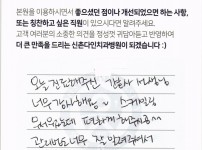 본원을 이용하시면서 좋으셨던 점이나 개선되었으면 하는 사항,
또는 칭찬하고 싶은 직원이 있으시다면 알려주세요.
고객 여러분의 소중한 의견을 정성껏 귀담아듣고 반영하여
더 큰 만족을 드리는 신촌다인치과병원이 되겠습니다 :)
오늘 진료해주신 선생님
너무 감사해요 스케일링
무서웠는데 편하게 해주시고
관리법도 너무 잘 알려주셔서